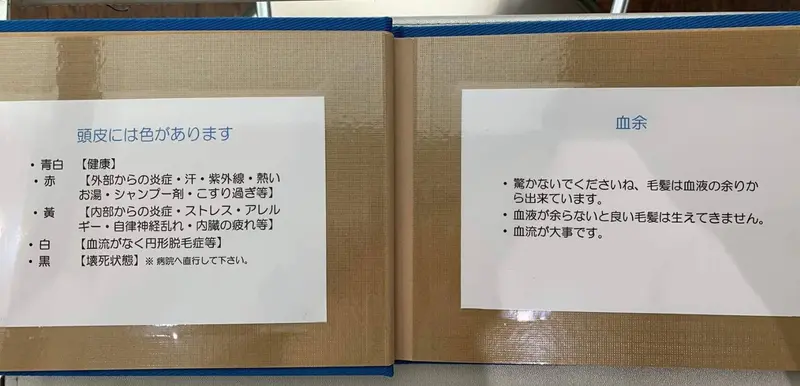 頭皮には色があります
・青白 【健康】
・赤 【外部からの炎症・汗・紫外線・熱い
お湯・シャンプー剤・こすり過ぎ等】
・黃 【内部からの炎症・ストレス・アレル
ギー・自律神経乱れ・内臓の疲れ等】
・白 【血流がなく円形脱毛症等】
・黒 【壊死状態】※ 病院へ直行して下さい。
血余
・驚かないでくださいね、毛髪は血液の余りか
ら出来ています。
・血液が余らないと良い毛髪は生えてきません。
・血流が大事です。